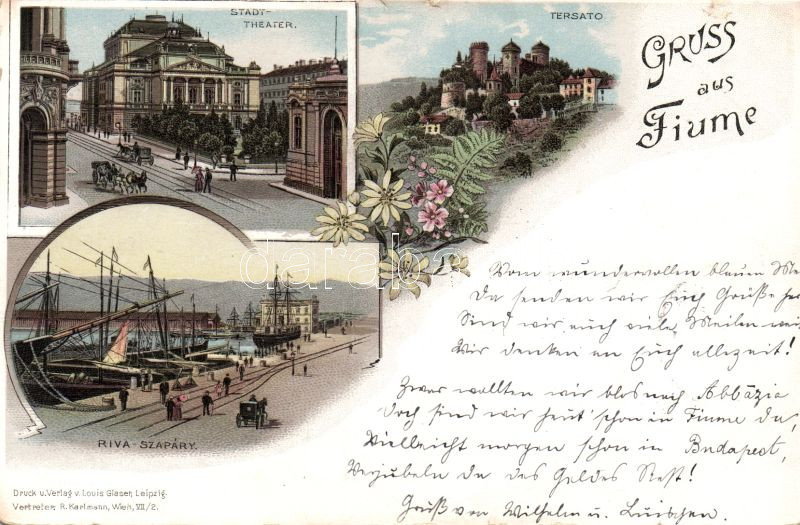 STADT-
THEATER.
TERSATO
GRUSS
aus
Fiume
darabanth
Vom wundervollen blauen Me
Da senden wir Euch Grüße her
Sind wir auch viele Meilen wei
Wir denken an Euch allezeit!
Zwar wollten wir blos nach Abbázia
Doch sind wir heut' schon in Fiume da,
Vielleicht morgen schon in Budapest,
Verjubeln da des Geldes Rest!
Gruß von Wilhelm u. Luischen.
RIVA-SZAPÁRY.
Druck u. Verlag v. Louis Glaser, Leipzig.
Vertreter, R. Karlmann, Wien, VII/2.